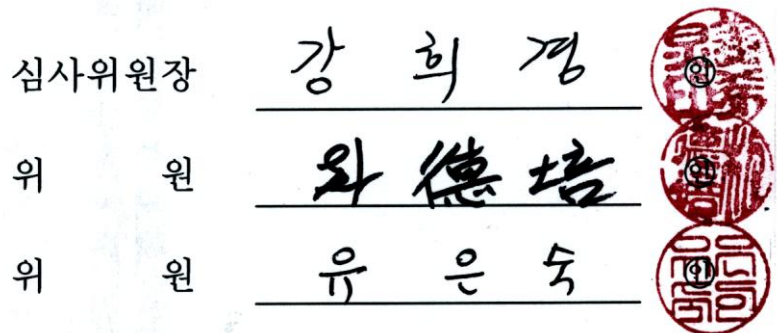 심사위원장 강 희 경 ㊞
위 원 德 培 ㊞
위 원 유 은 숙 ㊞